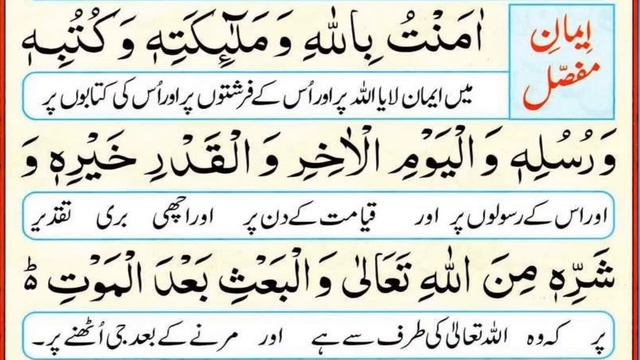 ایمانِ
مفصّل
اٰمَنْتُ بِاللّٰهِ وَ مَلٰٓئِكَتِهٖ وَ كُتُبِهٖ
میں ایمان لایا اللہ پر اور اُس کے فرشتوں پر اور اُس کی کتابوں پر
وَ رُسُلِهٖ وَ الْيَوْمِ الْاٰخِرِ وَ الْقَدْرِ خَيْرِهٖ وَ
اور اس کے رسولوں پر اور قیامت کے دن پر اور اچھی بری تقدیر
شَرِّهٖ مِنَ اللّٰهِ تَعَالٰى وَ الْبَعْثِ بَعْدَ الْمَوْتِ ؕ
پر کہ وہ اللہ تعالیٰ کی طرف سے ہے اور مرنے کے بعد جی اُٹھنے پر۔